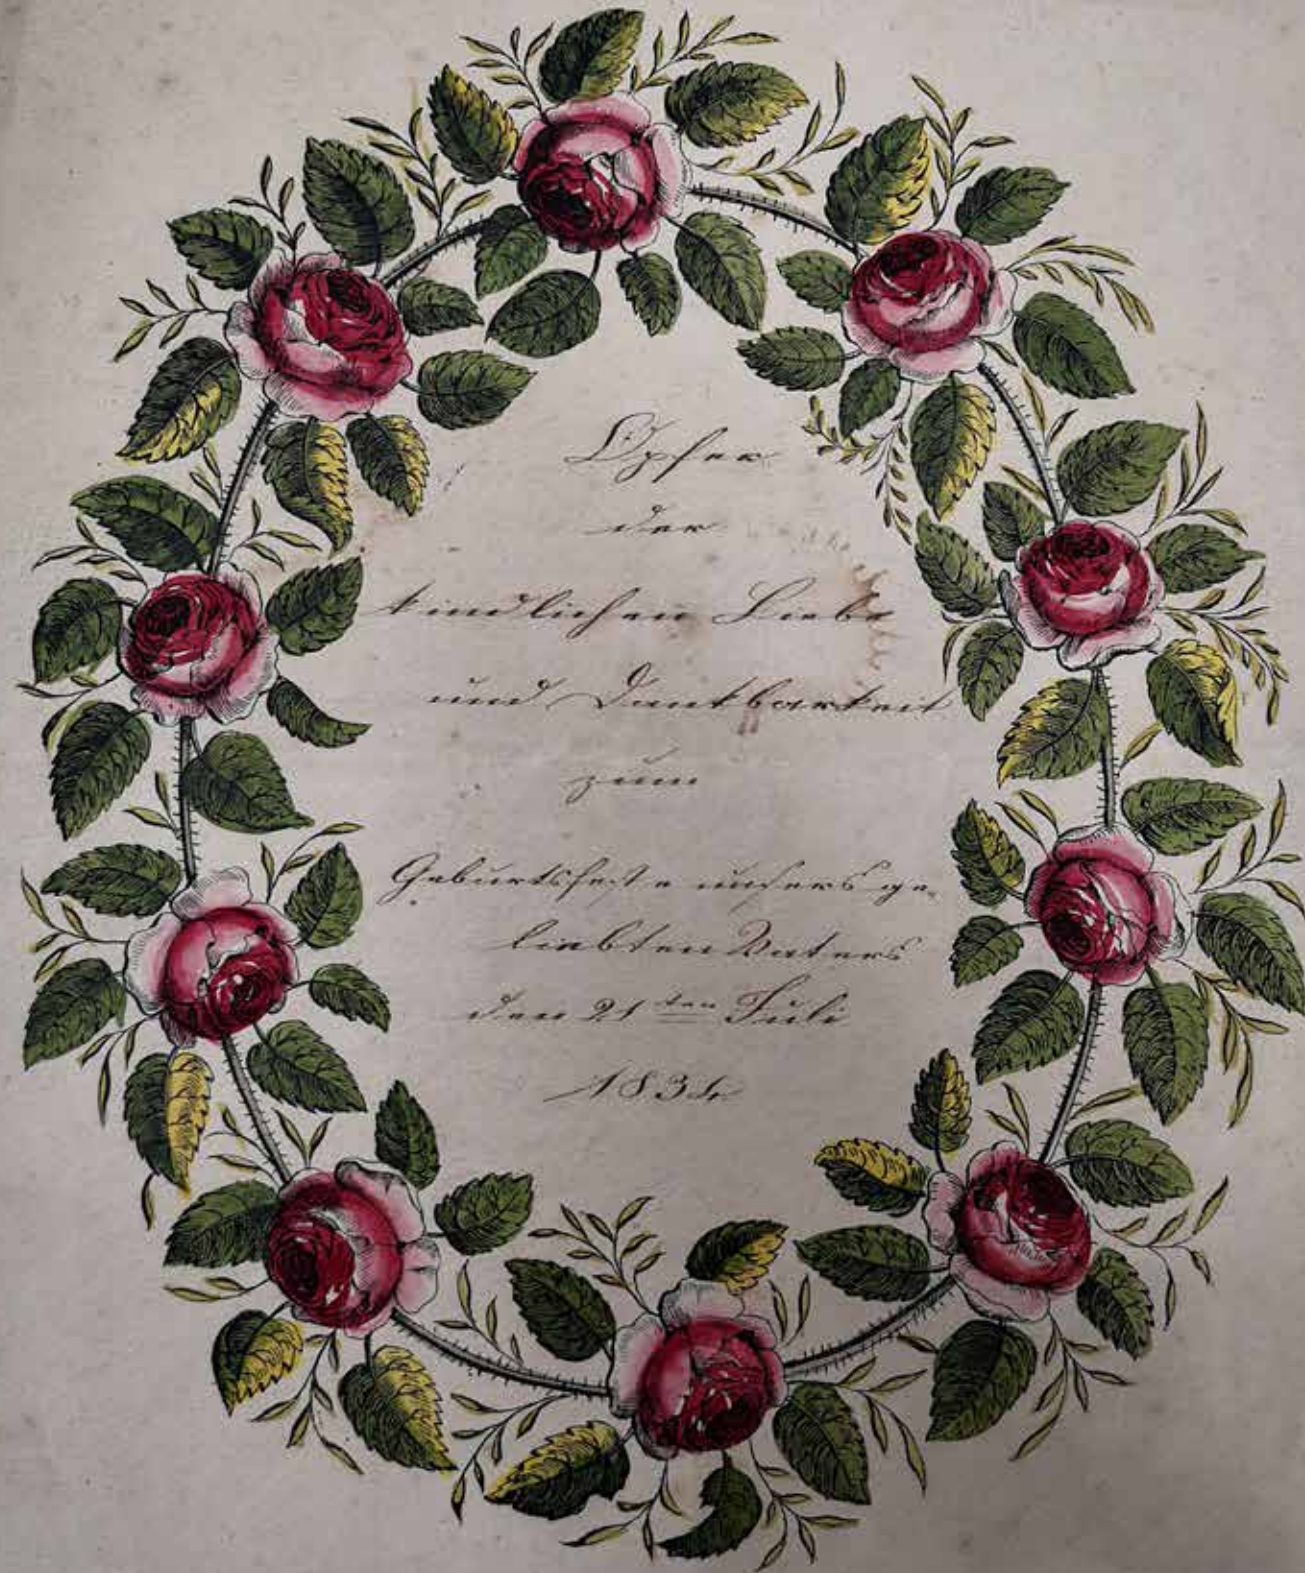 Opfer
der
kindlichen Liebe
und Dankbarkeit
zum
Geburtsfeste unsers ge-
liebten Vaters
den 21ten Juli
1834.